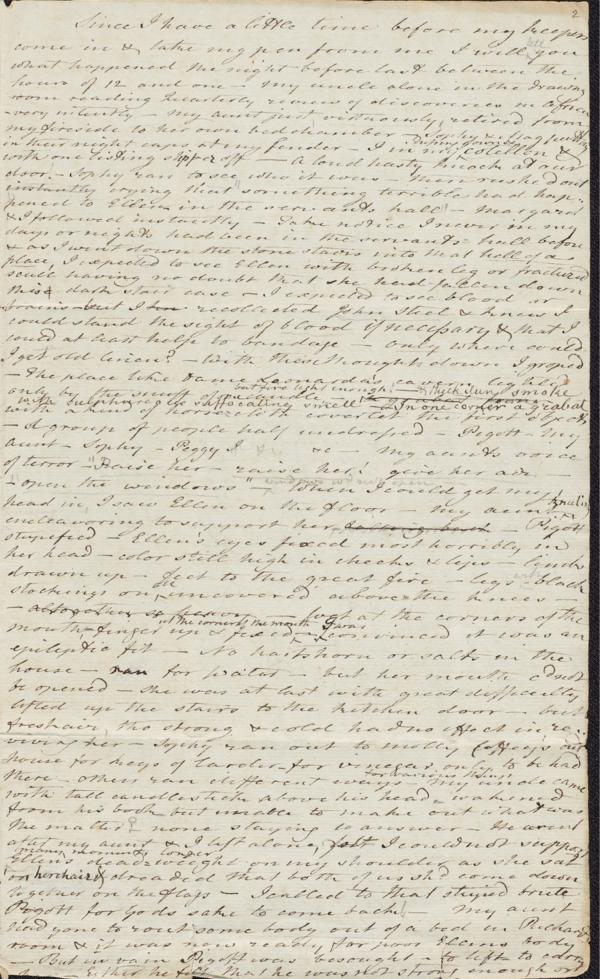 2
Since I have a little time before my keepers
come in & take my pen from me I will tell you
what happened the night before last between the
hours of 12 and one – my uncle alone in the drawing
room reading Quarterly review of discoveries in Africa
very intently – my aunt just virtuously retired from
my fireside to her own bedchamber – Sophy & Margaret
in their night caps at my fender – I in my &
with one list slipper off – a loud hasty knock at our
door – Sophy ran to see who it was – then rushed out
instantly crying that "something terrible had hap-
pened to Ellen in the servants hall" – Margaret
& I followed instantly – Take notice I never in my
days or nights had been in the servants hall before
& as I went down the stone stairs into that hell of a
place, I expected to see Ellen with broken leg or fractured
scull having no doubt that she had fallen down
this dark stair case – I expected to see blood or
brains – but I recollected John Steel & knew I
could stand the sight of blood if necessary & that I
could at least help to bandage – only where could
I get old linen? – with these thoughts down I groped
– The place like Dame Leonarda's cavern lighted
but fire light enough! – & thick dun smoke
only by the snuff of one candle
with sulphureous suffocating smell – In one corner a great bed
with a horse cloth coverlet the first object
– A group of people half undressed – Pigott – My
Aunt – Sophy – Peggy &c – my aunts voice
of terror – "Raise her – raise her! give her air –
"open the windows" – When I could get my
kneeling
head in, I saw Ellen on the floor – My aunt
endeavoring to support her – Pigott
stupified – Ellen's eyes fixed most horribly in
her head – color still high in cheeks & lips – limbs
drawn up – feet to the great fire – legs black
stockings on all uncovered above the knees –
– at the corners of the
mouth – finger up & fixed – convinced it was an
epileptic fit – No hartshorn or salts in the
house – ran for water – but her mouth cd not
be opened – she was at last with great difficulty
lifted up the stairs to the kitchen door – but
fresh air, tho strong & cold had no effect in re-
viving her – Sophy ran out to Molly Coffey's out
house for keys of larder – for vinegar only to be had
there – others ran different ways for various things – My uncle came
with tall candlestick above his head – wakened
from his book but unable to make out what was
the matter? none staying to answer – He went
after my aunt & I left alone, felt I could not support
many moments longer
Ellen's dead weight on my shoulder as she sat
in her chair & dreaded that both of us shd come down
together on the flags – I called to that stupid brute
Pigott for Gods sake to come back! – My aunt
had gone to rout some body out of a bed in Richards
room & it was now ready for poor Ellens body
– But in vain Pigott was besought to lift
Either he felt that he was not strong enough or